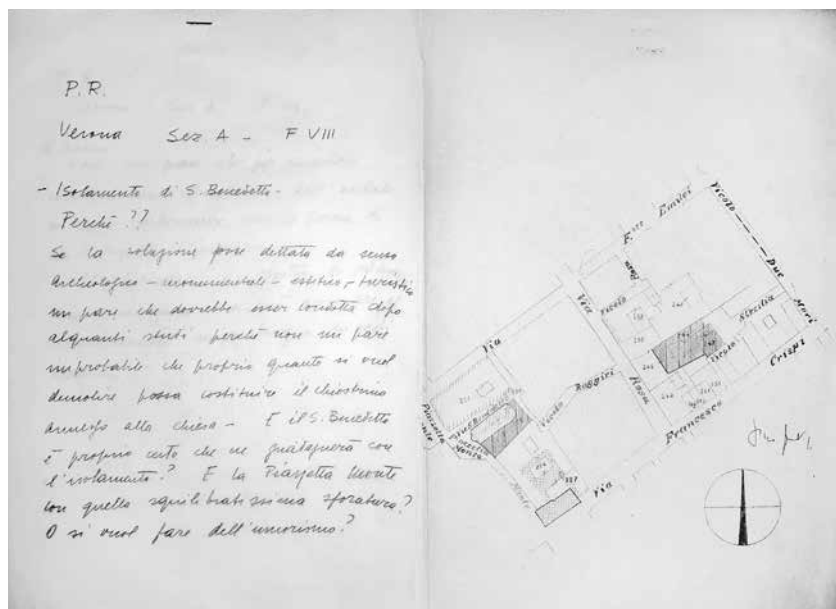 P.R.
Verona Sez. A - F VIII
- Isolamento di S. Benedetto -
Perché ??
Se la soluzione fosse dettata da senso
Archeologico - monumentale - estetico - turistico
mi pare che dovrebbe esser condotta dopo
alquanti studi perché non mi pare
improbabile che proprio quanto si vuol
demolire possa costituire il chiostrino
annesso alla chiesa - E il S. Benedetto
è proprio certo che ne guadagnerà con
l'isolamento? E la Piazzetta Monte
con quella squilibratissima sforatura?
O si vuol fare dell'umorismo?
F.lli Emilei
Vicolo Due Mori
Via
Vicolo
Rosa
Via
Rosa
Vicolo Storilia
Crispi
Vicolo Raggiri
Piazzetta
Monte
Monte
Francesco
Via